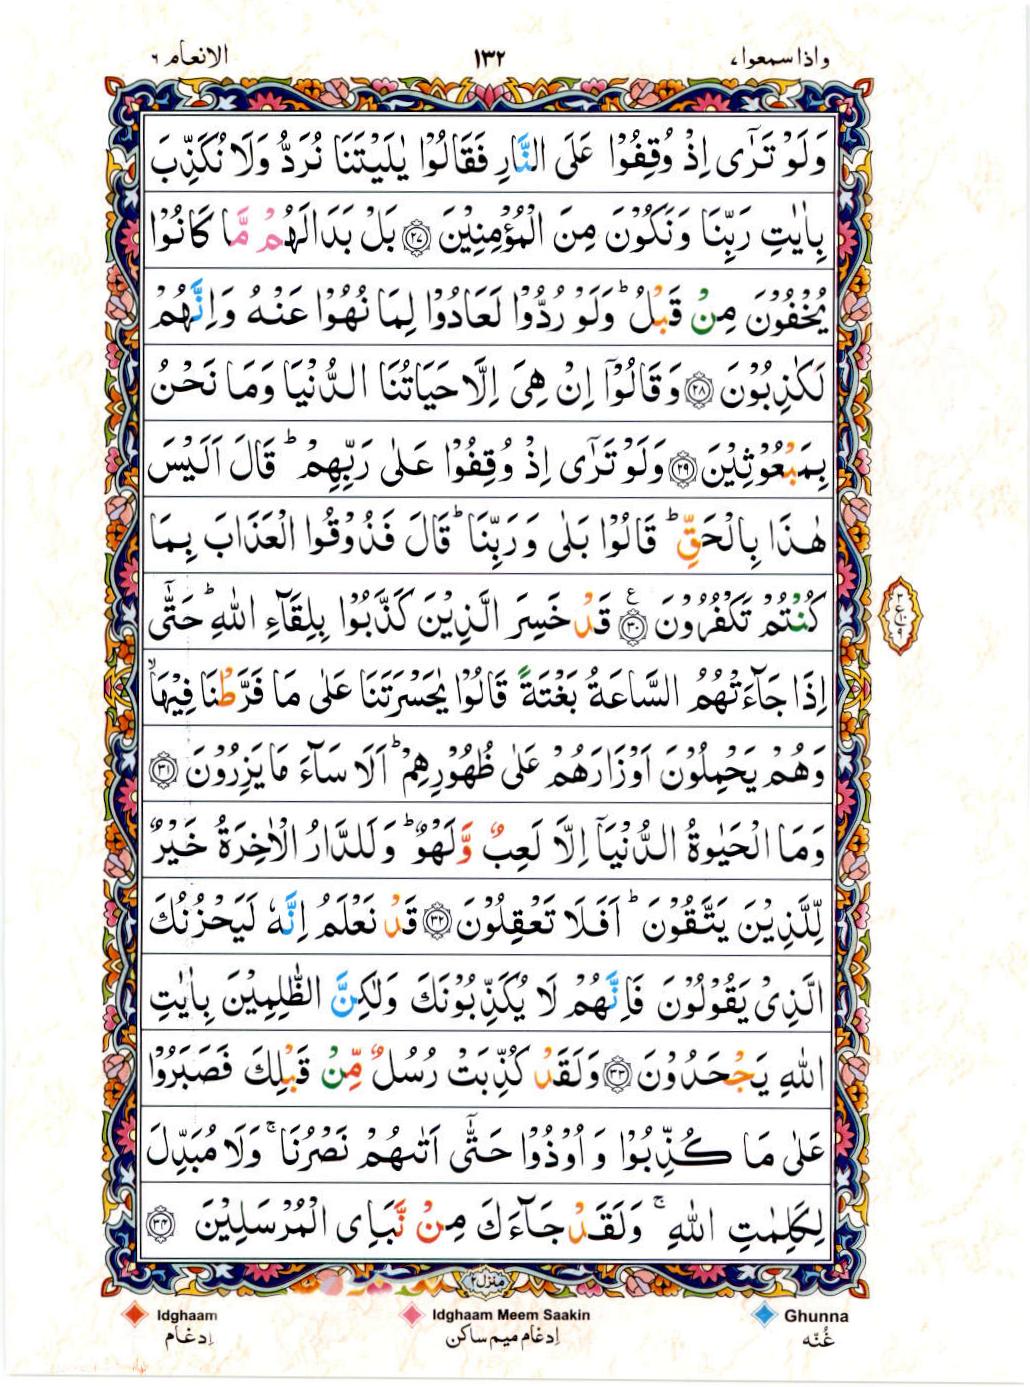 واذا سمعوا ٧
١٣٢
الانعام ٦
وَلَوْ تَرٰٓى اِذْ وُقِفُوْا عَلَى النَّارِ فَقَالُوْا يٰلَيْتَنَا نُرَدُّ وَلَا نُكَذِّبَ
بِاٰيٰتِ رَبِّنَا وَنَكُوْنَ مِنَ الْمُؤْمِنِيْنَ ﴿۲۷﴾ بَلْ بَدَا لَهُمْ مَّا كَانُوْا
يُخْفُوْنَ مِنْ قَبْلُ ؕ وَلَوْ رُدُّوْا لَعَادُوْا لِمَا نُهُوْا عَنْهُ وَاِنَّهُمْ
لَكٰذِبُوْنَ ﴿۲۸﴾ وَقَالُوْٓا اِنْ هِىَ اِلَّا حَيَاتُنَا الدُّنْيَا وَمَا نَحْنُ
بِمَبْعُوْثِيْنَ ﴿۲۹﴾ وَلَوْ تَرٰٓى اِذْ وُقِفُوْا عَلٰى رَبِّهِمْ ؕ قَالَ اَلَيْسَ
هٰذَا بِالْحَقِّ ؕ قَالُوْا بَلٰى وَرَبِّنَا ؕ قَالَ فَذُوْقُوا الْعَذَابَ بِمَا
كُنْتُمْ تَكْفُرُوْنَ ﴿۳۰﴾ ع قَدْ خَسِرَ الَّذِيْنَ كَذَّبُوْا بِلِقَآءِ اللّٰهِ ؕ حَتّٰٓى
اِذَا جَآءَتْهُمُ السَّاعَةُ بَغْتَةً قَالُوْا يٰحَسْرَتَنَا عَلٰى مَا فَرَّطْنَا فِيْهَا ۙ
وَهُمْ يَحْمِلُوْنَ اَوْزَارَهُمْ عَلٰى ظُهُوْرِهِمْ ؕ اَلَا سَآءَ مَا يَزِرُوْنَ ﴿۳۱﴾
وَمَا الْحَيٰوةُ الدُّنْيَآ اِلَّا لَعِبٌ وَّلَهْوٌ ؕ وَلَلدَّارُ الْاٰخِرَةُ خَيْرٌ
لِّلَّذِيْنَ يَتَّقُوْنَ ؕ اَفَلَا تَعْقِلُوْنَ ﴿۳۲﴾ قَدْ نَعْلَمُ اِنَّهٗ لَيَحْزُنُكَ
الَّذِىْ يَقُوْلُوْنَ فَاِنَّهُمْ لَا يُكَذِّبُوْنَكَ وَلٰكِنَّ الظّٰلِمِيْنَ بِاٰيٰتِ
اللّٰهِ يَجْحَدُوْنَ ﴿۳۳﴾ وَلَقَدْ كُذِّبَتْ رُسُلٌ مِّنْ قَبْلِكَ فَصَبَرُوْا
عَلٰى مَا كُذِّبُوْا وَاُوْذُوْا حَتّٰٓى اَتٰٮهُمْ نَصْرُنَا ۚ وَلَا مُبَدِّلَ
لِكَلِمٰتِ اللّٰهِ ۚ وَلَقَدْ جَآءَكَ مِنْ نَّبَاِى الْمُرْسَلِيْنَ ﴿۳۴﴾
منزل ٢
Idghaam
Idghaam Meem Saakin
Ghunna
اِدغام
اِدغام میم ساکن
غُنّه